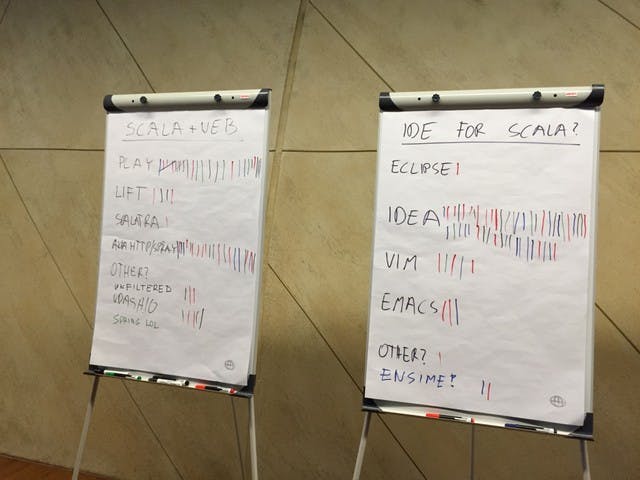 SCALA + WEB
PLAY
LIFT
SCALATRA
AKKA HTTP/SPRAY
OTHER?
UNFILTERED
UDASH/O
SPRING LOL
IDE FOR SCALA?
ECLIPSE
IDEA
VIM
EMACS
OTHER?
ENSIME?